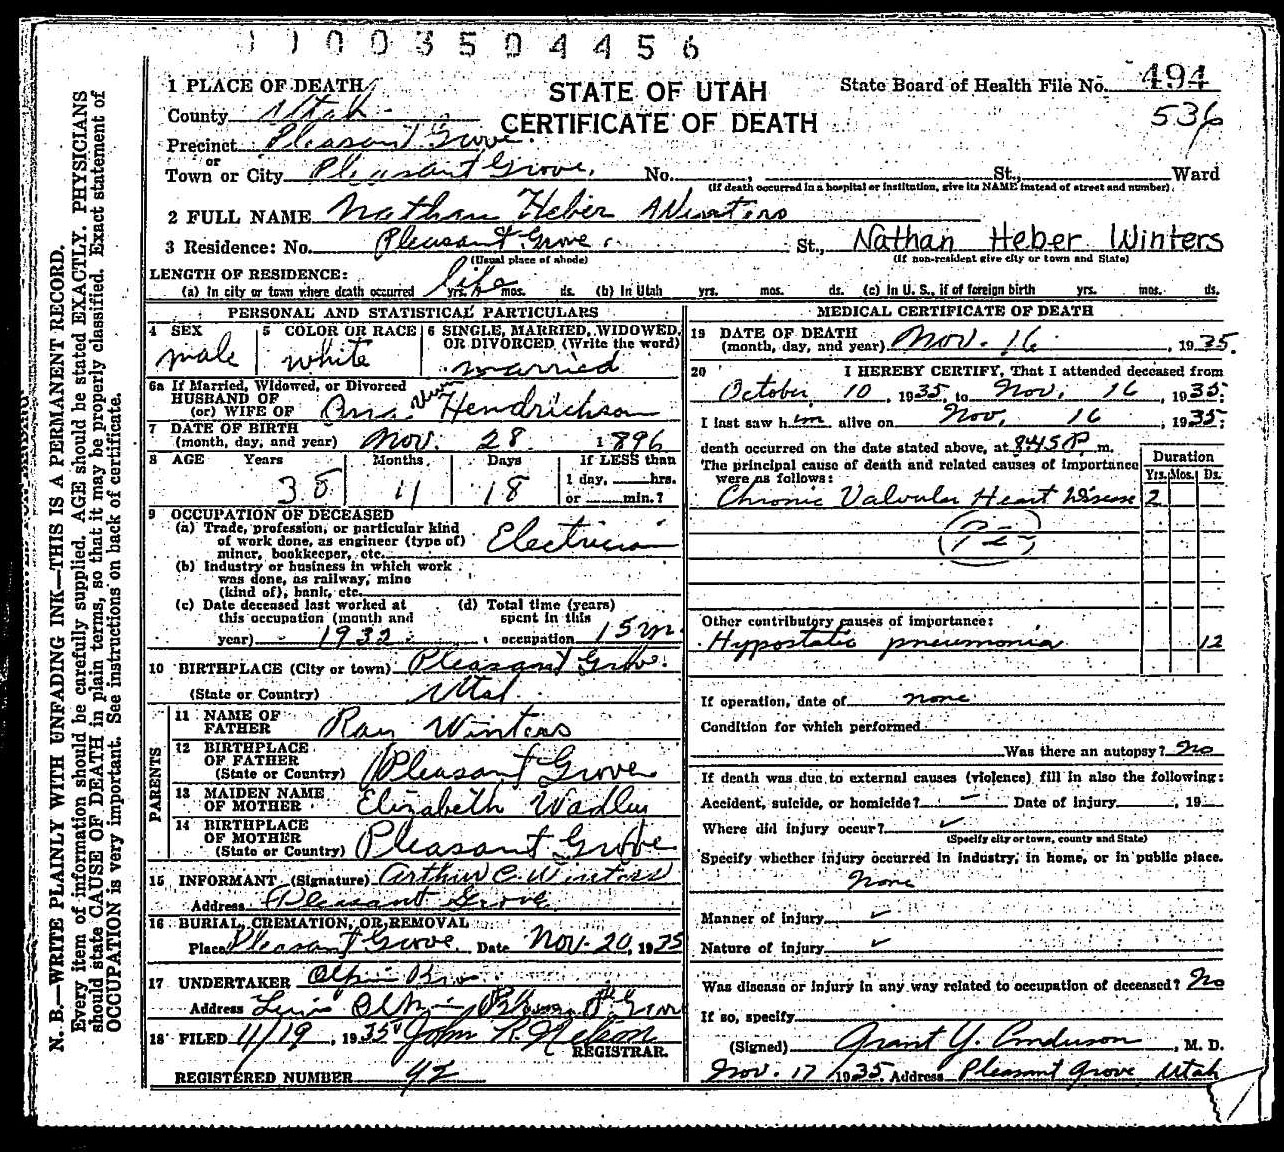 1 1 0 0 3 5 0 4 4 5 6
STATE OF UTAH
CERTIFICATE OF DEATH
State Board of Health File No. 494
536
1 PLACE OF DEATH
County Utah
Precinct Pleasant Grove
or
Town or City Pleasant Grove. No. , St., Ward
(If death occurred in a hospital or institution, give its NAME instead of street and number).
2 FULL NAME Nathan Heber Winters
3 Residence: No. Pleasant Grove. St., Nathan Heber Winters
(Usual place of abode) (If non-resident give city or town and State)
LENGTH OF RESIDENCE:
(a) In city or town where death occurred life yrs. mos. ds. (b) In Utah yrs. mos. ds. (c) in U. S., if of foreign birth yrs. mos. ds.
PERSONAL AND STATISTICAL PARTICULARS
4 SEX 5 COLOR OR RACE 6 SINGLE, MARRIED, WIDOWED,
OR DIVORCED (Write the word)
male white married
6a If Married, Widowed, or Divorced
HUSBAND OF
(or) WIFE OF Hendrickson
7 DATE OF BIRTH
(month, day, and year) Nov. 28 1896
8 AGE Years Months Days If LESS than
38 11 18 1 day, hrs.
or min.?
9 OCCUPATION OF DECEASED
(a) Trade, profession, or particular kind
of work done, as engineer (type of) Electrician
miner, bookkeeper, etc.
(b) Industry or business in which work
was done, as railway, mine
(kind of), bank, etc.
(c) Date deceased last worked at (d) Total time (years)
this occupation (month and spent in this
year) 1932 occupation 15
10 BIRTHPLACE (City or town) Pleasant Grove.
(State or Country) Utah
PARENTS
11 NAME OF
FATHER Ray Winters
12 BIRTHPLACE
OF FATHER
(State or Country) Pleasant Grove
13 MAIDEN NAME
OF MOTHER Elizabeth Wadley
14 BIRTHPLACE
OF MOTHER
(State or Country) Pleasant Grove
15 INFORMANT (Signature) Arthur C. Winters
Address Pleasant Grove
16 BURIAL, CREMATION, OR REMOVAL
Place Pleasant Grove Date Nov. 20, 1935
17 UNDERTAKER
Address
18 FILED 11/19, 1935 John R. Nelson
REGISTRAR.
REGISTERED NUMBER 42
MEDICAL CERTIFICATE OF DEATH
19 DATE OF DEATH
(month, day, and year) Nov. 16, 1935.
20 I HEREBY CERTIFY, That I attended deceased from
October 10, 1935, to Nov. 16, 1935;
I last saw him alive on Nov. 16, 1935;
death occurred on the date stated above, at 8:45 P. m.
The principal cause of death and related causes of importance
were as follows:
Duration
Yrs. Mos. Ds.
Chronic Valvular Heart Disease 2
Other contributory causes of importance:
Hypostatic pneumonia 12
If operation, date of none
Condition for which performed
Was there an autopsy? No
If death was due to external causes (violence) fill in also the following:
Accident, suicide, or homicide? Date of injury , 19
Where did injury occur?
(Specify city or town, county and State)
Specify whether injury occurred in industry, in home, or in public place.
None
Manner of injury
Nature of injury
Was disease or injury in any way related to occupation of deceased? No
If so, specify
(Signed) Grant Y. Anderson, M. D.
Nov. 17 1935. Address Pleasant Grove, Utah
N. B.—WRITE PLAINLY WITH UNFADING INK—THIS IS A PERMANENT RECORD.
Every item of information should be carefully supplied. AGE should be stated EXACTLY. PHYSICIANS
should state CAUSE OF DEATH in plain terms, so that it may be properly classified. Exact statement of
OCCUPATION is very important. See instructions on back of certificate.